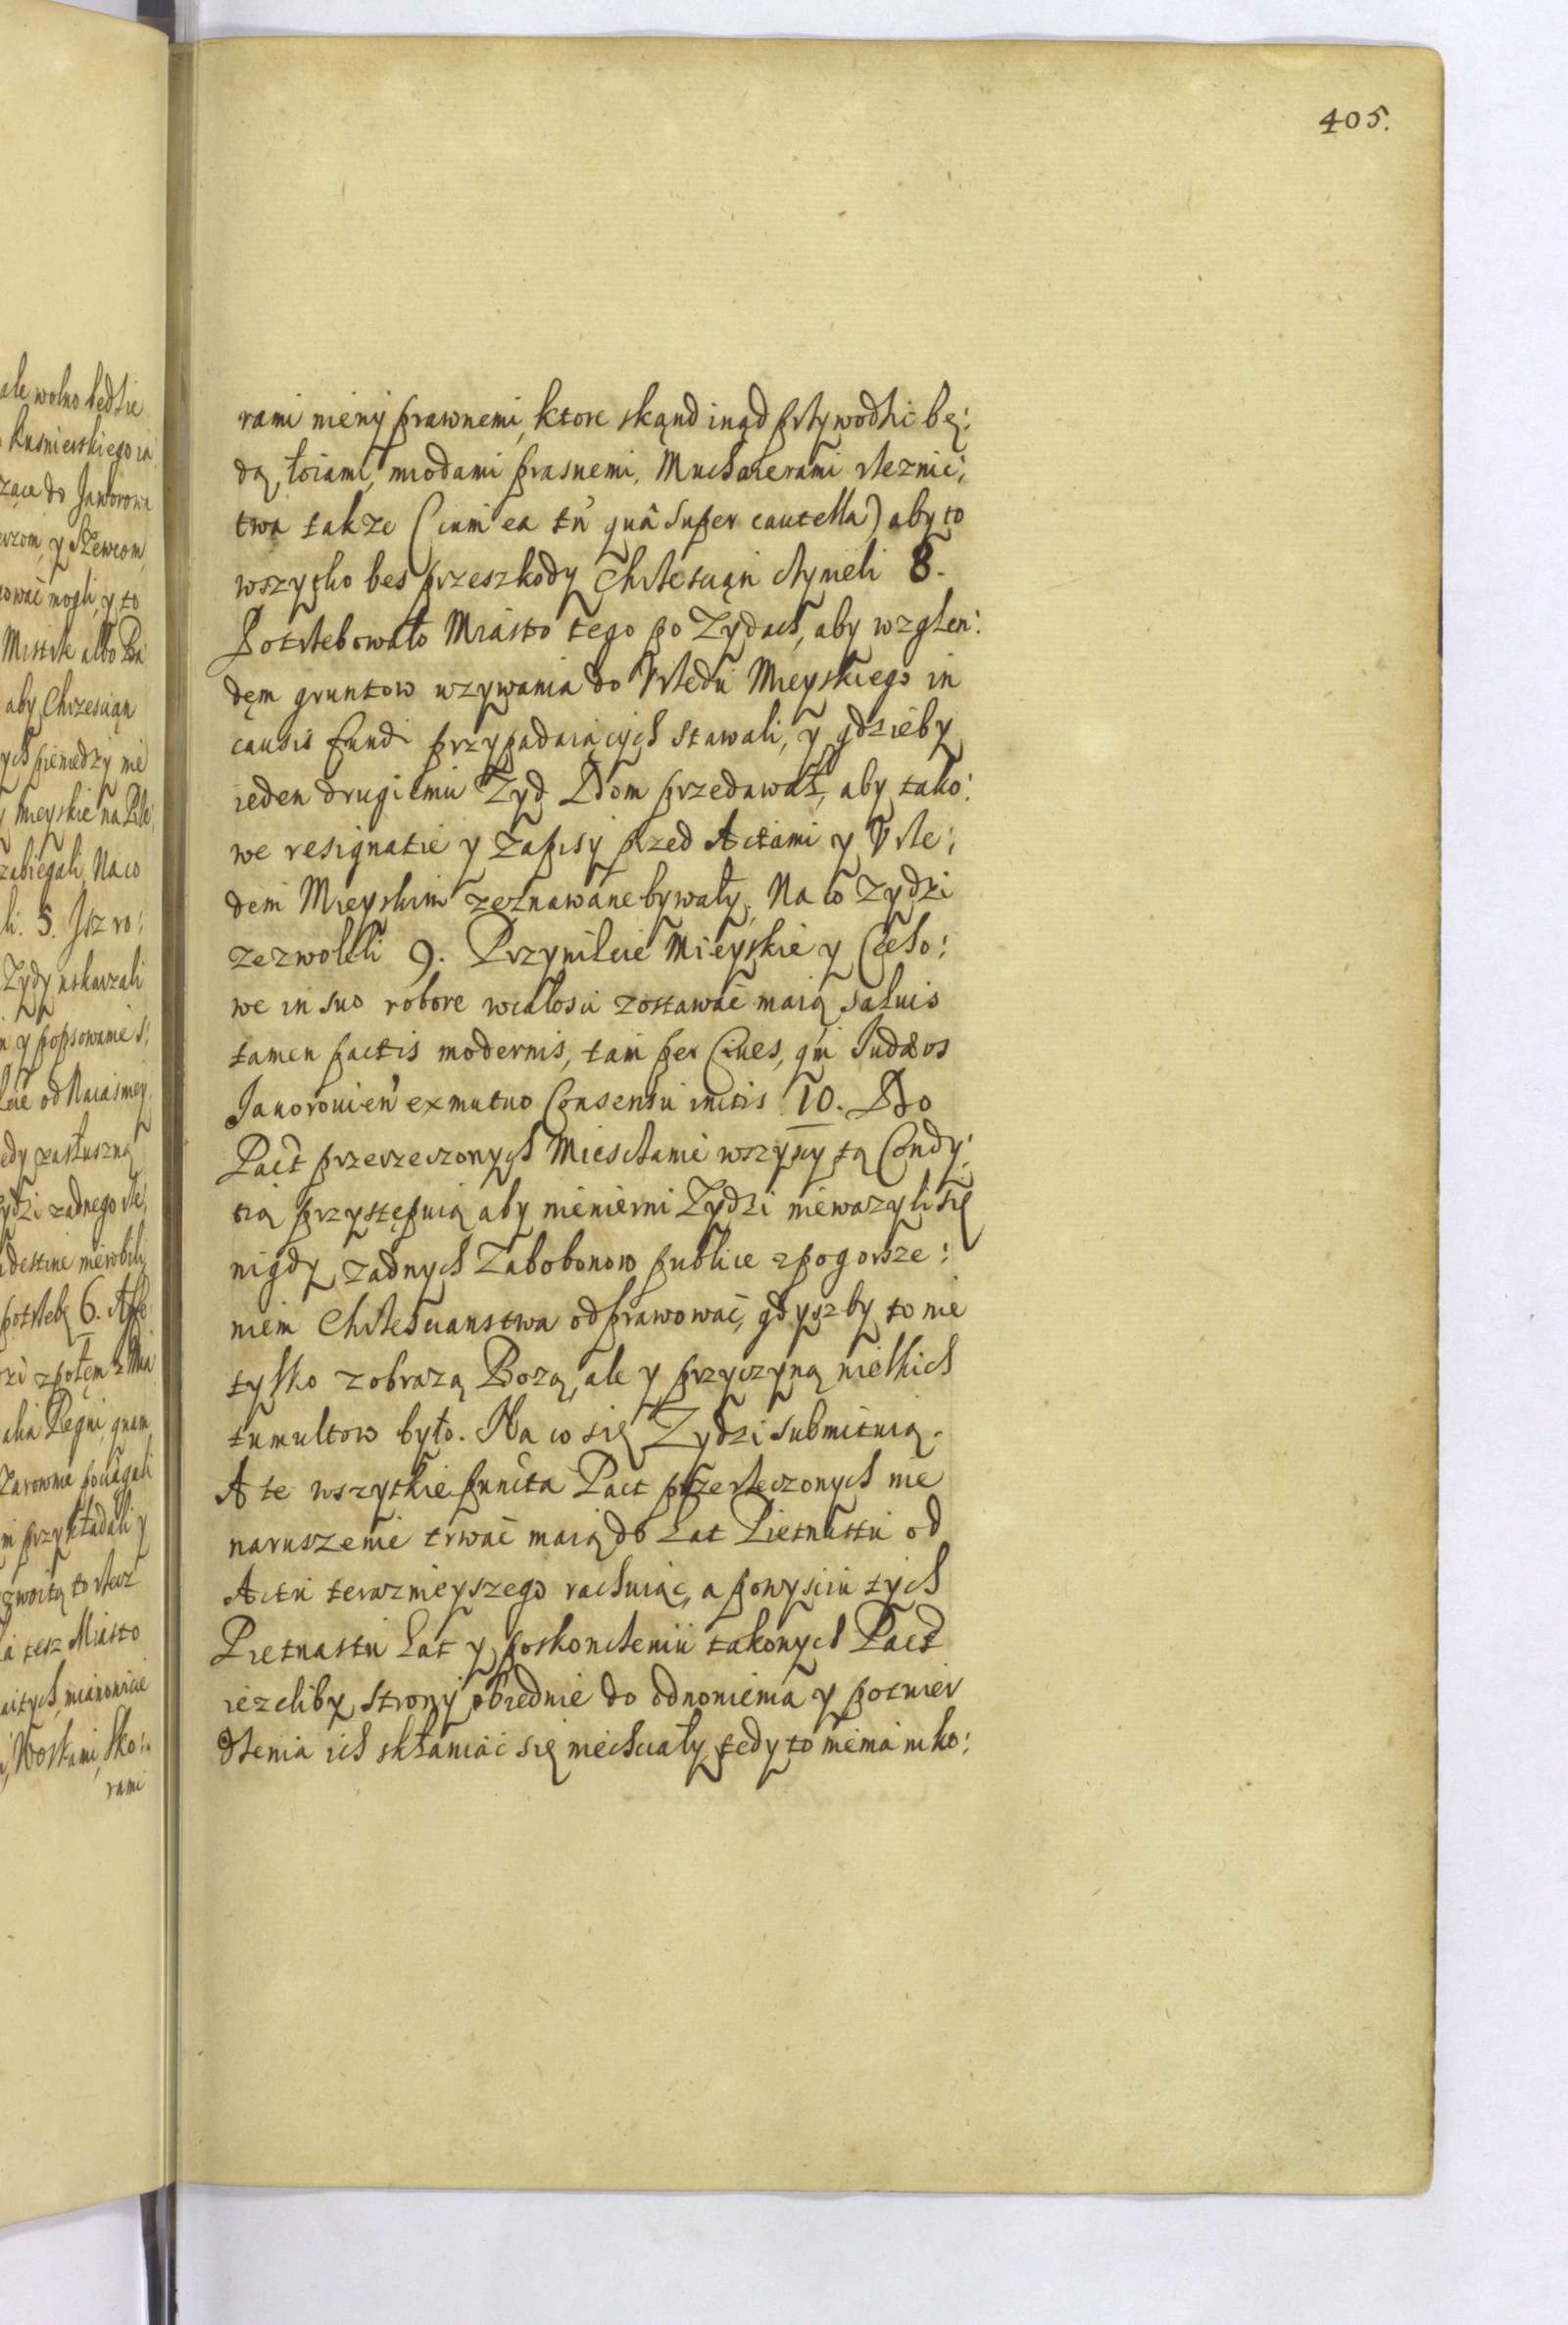 405.
ale wolno będzie
kusnierskiego ia
zące do Jaworowa
erzom, y Szewcom,
mogli, y to
Mistrz albo
aby Chrzescian
ych pieniedzy nie
mieyskie na
zabiegali, Na co
li. 5. Jsz ro:
Zydy uskarzali
y popsowanie
od
edy zasłuszną
ydzi zadnego
destine nierobili
potrzebę 6.
z połem z
alia Regni, quam
Zarowno pociągali
m przykładali y
to rzecz
a tesz Miasto
mianowicie
Woskami, sko:
rami
rami nieny prawnemi, ktore skąnd inąd przywodzic bę:
dą, łoiami, miodami prasnemi, Muchaierami rzeznic:
twa takze (cum ea tñ quâ super cautella) aby to
wszytko bes przeszkody Chrzesciąn czynieli 8.
Potrzebowało Miasto tego po Zydach, aby wzglen:
dęm gruntow uzywania do Vrzedu Mieyskiego in
causis fundi przypadaiących stawali, y gdzieby
ieden drugiemu Zyd Dom przedawał, aby tako:
we resignatie y Zapisy przed Actami y Vrze:
dem Mieyskim zeznawane bywały, Na co Zydzi
zezwolili 9. Przywileie Mieyskie y Cecho:
we in suo robore wcałosci zostawać maią saluis
tamen pactis modernis, tam per Ciues, qm Judæos
Jauorouieñ ex mutuo Consensu initis 10. Do
Pact przerzeczonych Miesczanie wszyscy tą Condy:
tią przystępuią aby niewierni Zydzi niewazyli się
nigdy zadnych Zabobonow publice z pogorsze:
niem Chrzescianstwa odprawować, gdyszby to nie
tylko z obrazą Bozą, ale y przyczyną wielkich
tumultow było. Na co się Zydzi submituią.
A te wszytkie puncta Pact przerzeczonych nie
naruszenie trwać maią do Lat Pietnastu od
Actu teraznieyszego rachuiąc, a powysciu tych
Pietnastu Lat y poskonczeniu takowych Pact
iezeliby strony obiedwie do odnowienia y potwier
dzenia ich skłaniać się niechciały tedy to niema niko: